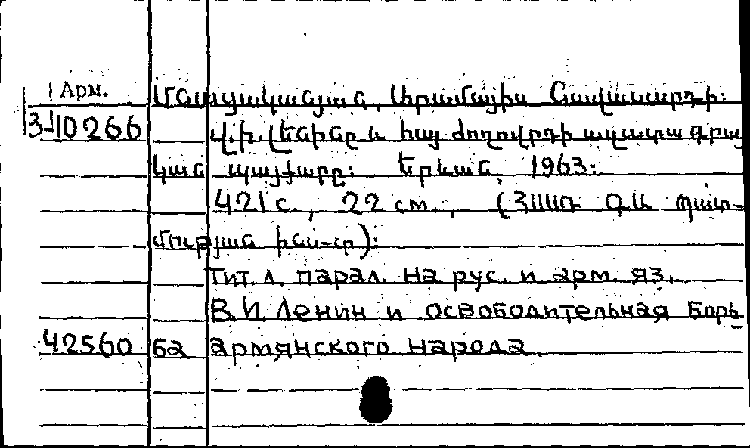 Арм.
Մնացականյան, Արամայիս Գավասարդի:
3-10266 Վ.Ի. Լենինը և հայ ժողովրդի ազատագրա
կան պայքարը: Երևան, 1963.
421 с., 22 см., (ՀՍՍՌ ԳԱ պատ-
մության ինս-տ):
Тит. л. парал. на рус. и арм. яз.
В.И. Ленин и освободительная борь
42560 ба армянского народа.